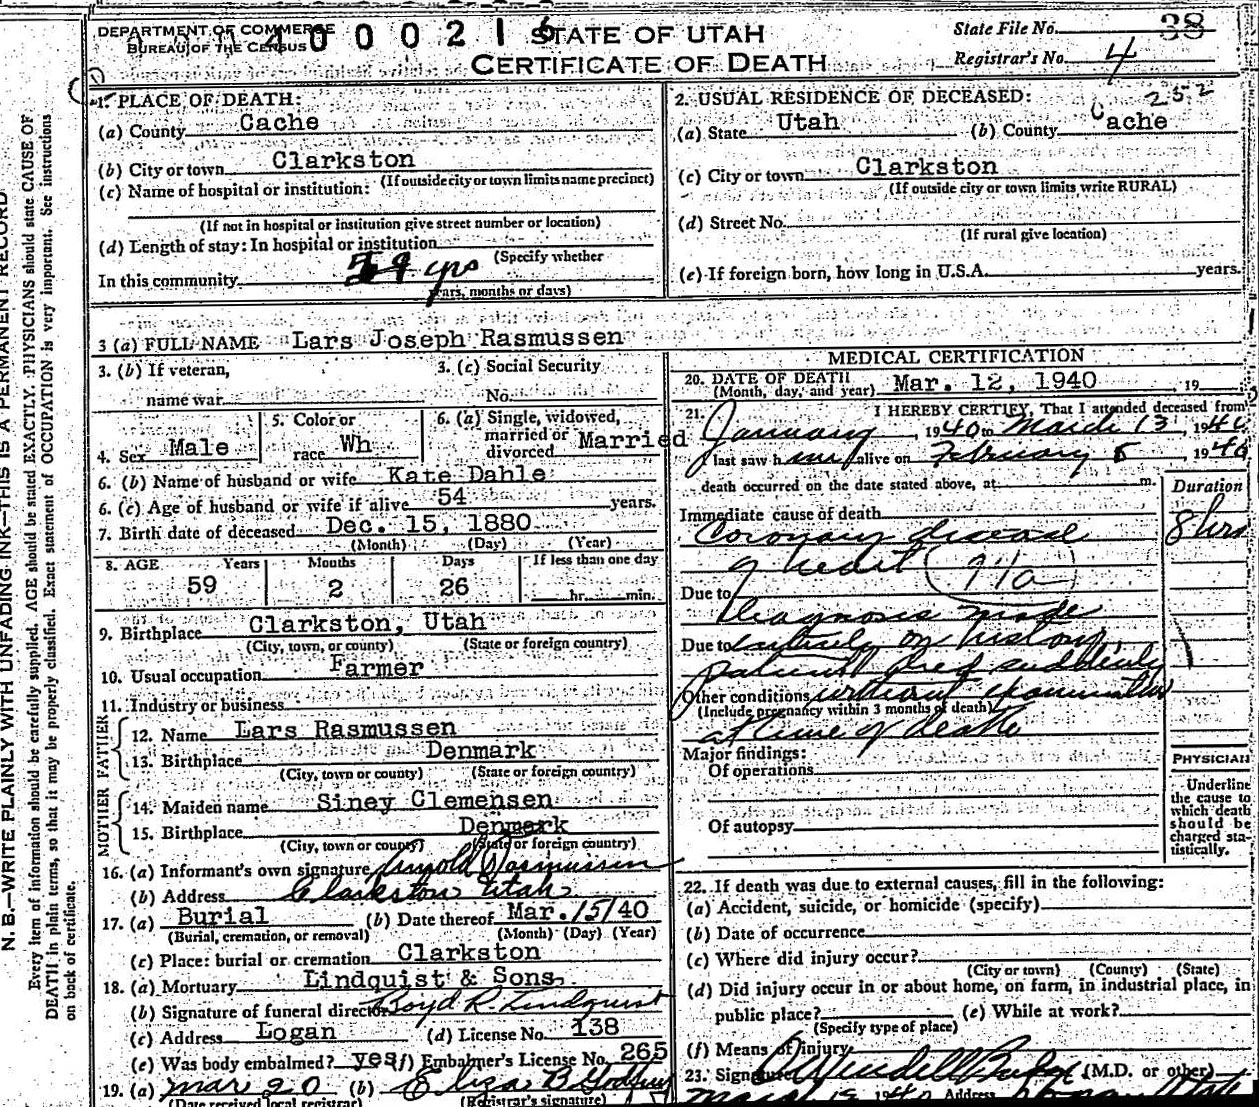 DEPARTMENT OF COMMERCE
BUREAU OF THE CENSUS
400021
STATE OF UTAH
CERTIFICATE OF DEATH
State File No. 38
Registrar's No. 4
1. PLACE OF DEATH:
(a) County Cache
(b) City or town Clarkston
(If outside city or town limits name precinct)
(c) Name of hospital or institution:
(If not in hospital or institution give street number or location)
(d) Length of stay: In hospital or institution
(Specify whether
In this community 59 yrs
years, months or days)
2. USUAL RESIDENCE OF DECEASED: 252
(a) State Utah (b) County Cache
(c) City or town Clarkston
(If outside city or town limits write RURAL)
(d) Street No.
(If rural give location)
(e) If foreign born, how long in U.S.A. years.
3 (a) FULL NAME Lars Joseph Rasmussen
3. (b) If veteran, name war
3. (c) Social Security No.
4. Sex Male
5. Color or race Wh
6. (a) Single, widowed, married or divorced Married
6. (b) Name of husband or wife Kate Dahle
6. (c) Age of husband or wife if alive 54 years.
7. Birth date of deceased Dec. 15, 1880
(Month) (Day) (Year)
8. AGE Years Months Days If less than one day
59 2 26 hr. min.
9. Birthplace Clarkston, Utah
(City, town, or county) (State or foreign country)
10. Usual occupation Farmer
11. Industry or business
FATHER
12. Name Lars Rasmussen
13. Birthplace Denmark
(City, town or county) (State or foreign country)
MOTHER
14. Maiden name Siney Clemensen
15. Birthplace Denmark
(City, town or county) (State or foreign country)
16. (a) Informant's own signature Arnold Rasmussen
(b) Address Clarkston Utah
17. (a) Burial (b) Date thereof Mar. 15/40
(Burial, cremation, or removal) (Month) (Day) (Year)
(c) Place: burial or cremation Clarkston
18. (a) Mortuary Lindquist & Sons
(b) Signature of funeral director Boyd R. Lindquist
(c) Address Logan (d) License No. 138
(e) Was body embalmed? yes (f) Embalmer's License No. 265
19. (a) Mar 20 (b) Eliza B Godfrey
(Date received local registrar) (Registrar's signature)
MEDICAL CERTIFICATION
20. DATE OF DEATH
(Month, day, and year) Mar. 12, 1940 , 19
21. I HEREBY CERTIFY, That I attended deceased from
January , 1940 to March 13 , 1940
I last saw him alive on February 8 , 1940
death occurred on the date stated above, at m.
Duration
Immediate cause of death
Coronary disease 8 hrs
of heart
Due to
Diagnosis made
Due to entirely on history,
patient died suddenly
Other conditions without examination
(Include pregnancy within 3 months of death)
at time of death
Major findings:
Of operations
Of autopsy
PHYSICIAN
Underline
the cause to
which death
should be
charged sta-
tistically.
22. If death was due to external causes, fill in the following:
(a) Accident, suicide, or homicide (specify)
(b) Date of occurrence
(c) Where did injury occur?
(City or town) (County) (State)
(d) Did injury occur in or about home, on farm, in industrial place, in
public place? (e) While at work?
(Specify type of place)
(f) Means of injury
23. Signature (M.D. or other)
1940 Address Logan Utah
N. B.—WRITE PLAINLY WITH UNFADING INK—THIS IS A PERMANENT RECORD
Every item of information should be carefully supplied. AGE should be stated EXACTLY. PHYSICIANS should state CAUSE OF
DEATH in plain terms, so that it may be properly classified. Exact statement of OCCUPATION is very important. See instructions
on back of certificate.